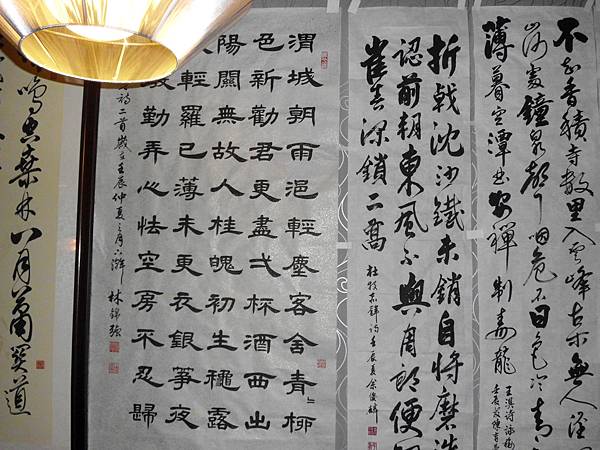 不知香積寺數里入雲峰古木無人徑
山何處鐘泉聲咽危石日色冷青
薄暮空潭曲安禪制毒龍
折戟沈沙鐵未銷自將磨洗
認前朝東風不與周郎便
雀春深鎖二喬
杜牧赤壁詩壬辰夏余俊
渭城朝雨浥輕塵客舍青〻柳
色新勸君更盡弌杯酒西出
陽關無故人桂魄初生穐露
輕羅已薄未更衣銀箏夜
殷勤弄心怯空房不忍歸
詩二首歲在壬辰仲夏之月 林錦強
鳴空桑林八月蕭關道